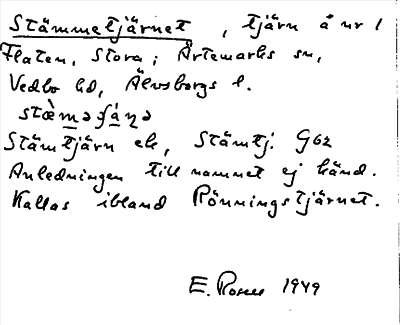 Stämmetjärnet, tjärn å nr 1
Flaten, Stora; Ärtemarks sn,
Vedbo hd, Älvsborgs l.
Stämtjärn ek, Stämtj. Gbz
Anledningen till namnet ej känd.
Kallas ibland Rönningstjärnet.
E. Rosell 1949